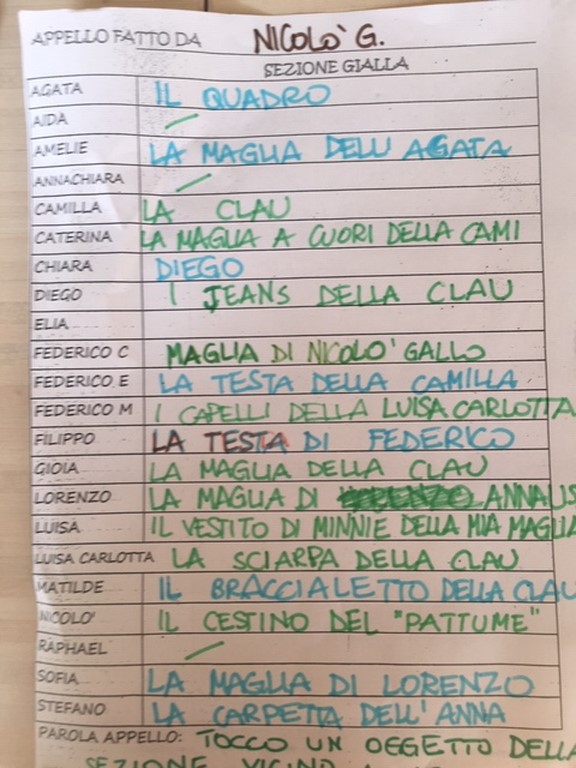 APPELLO FATTO DA NICOLO' G.
SEZIONE GIALLA
AGATA IL QUADRO
AIDA
AMELIE LA MAGLIA DELLU AGATA
ANNACHIARA
CAMILLA LA CLAU
CATERINA LA MAGLIA A CUORI DELLA CAMI
CHIARA DIEGO
DIEGO I JEANS DELLA CLAU
ELIA
FEDERICO C MAGLIA DI NICOLO' GALLO
FEDERICO E LA TESTA DELLA CAMILLA
FEDERICO M I CAPELLI DELLA LUISA CARLOTTA
FILIPPO LA TESTA DI FEDERICO
GIOIA LA MAGLIA DELLA CLAU
LORENZO LA MAGLIA DI ANNALIS
LUISA IL VESTITO DI MINNIE DELLA MIA MAGLIA
LUISA CARLOTTA LA SCIARPA DELLA CLAU
MATILDE IL BRACCIALETTO DELLA CLAU
NICOLO' IL CESTINO DEL "PATTUME"
RAPHAEL
SOFIA LA MAGLIA DI LORENZO
STEFANO LA CARPETTA DELL'ANNA
PAROLA APPELLO: TOCCO UN OGGETTO DELLA
SEZIONE VICINO